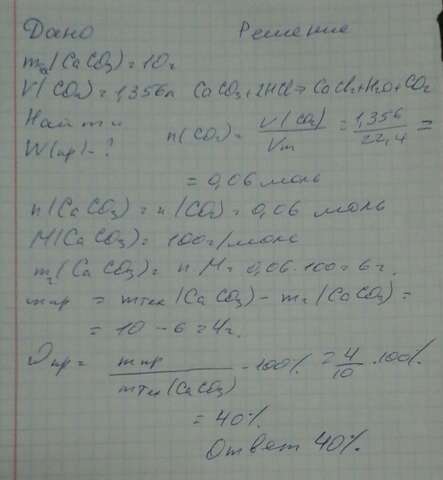 Дано Решение
m(CaCO₃)=10г
V(CO₂)=1,356л CaCO₃+2HCl=CaCl₂+H₂O+CO₂
Найти
W(пр)-? n(CO₂)= V(CO₂)/Vm = 1,356/22,4 =
= 0,06 моль
n(CaCO₃)=n(CO₂)=0,06 моль
M(CaCO₃)=100г/моль
m₂(CaCO₃)= n M= 0,06·100=6г.
mпр = mтех(CaCO₃)-m₂(CaCO₃)=
= 10-6=4г.
ωпр= mпр/mтех(CaCO₃) ·100%=4/10·100%
=40%.
Ответ 40%.